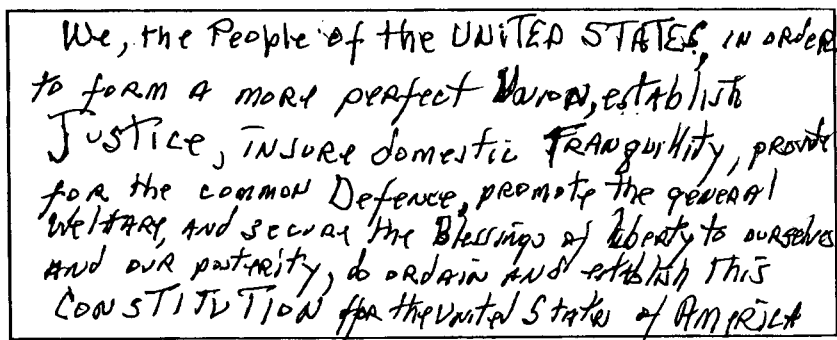 We, the People of the UNITED STATES, in order
to form a more perfect Union, establish
Justice, insure domestic Tranquillity, provide
for the common Defence, promote the general
Welfare, and secure the Blessings of Liberty to ourselves
and our posterity, do ordain and establish This
CONSTITUTION for the United States of America